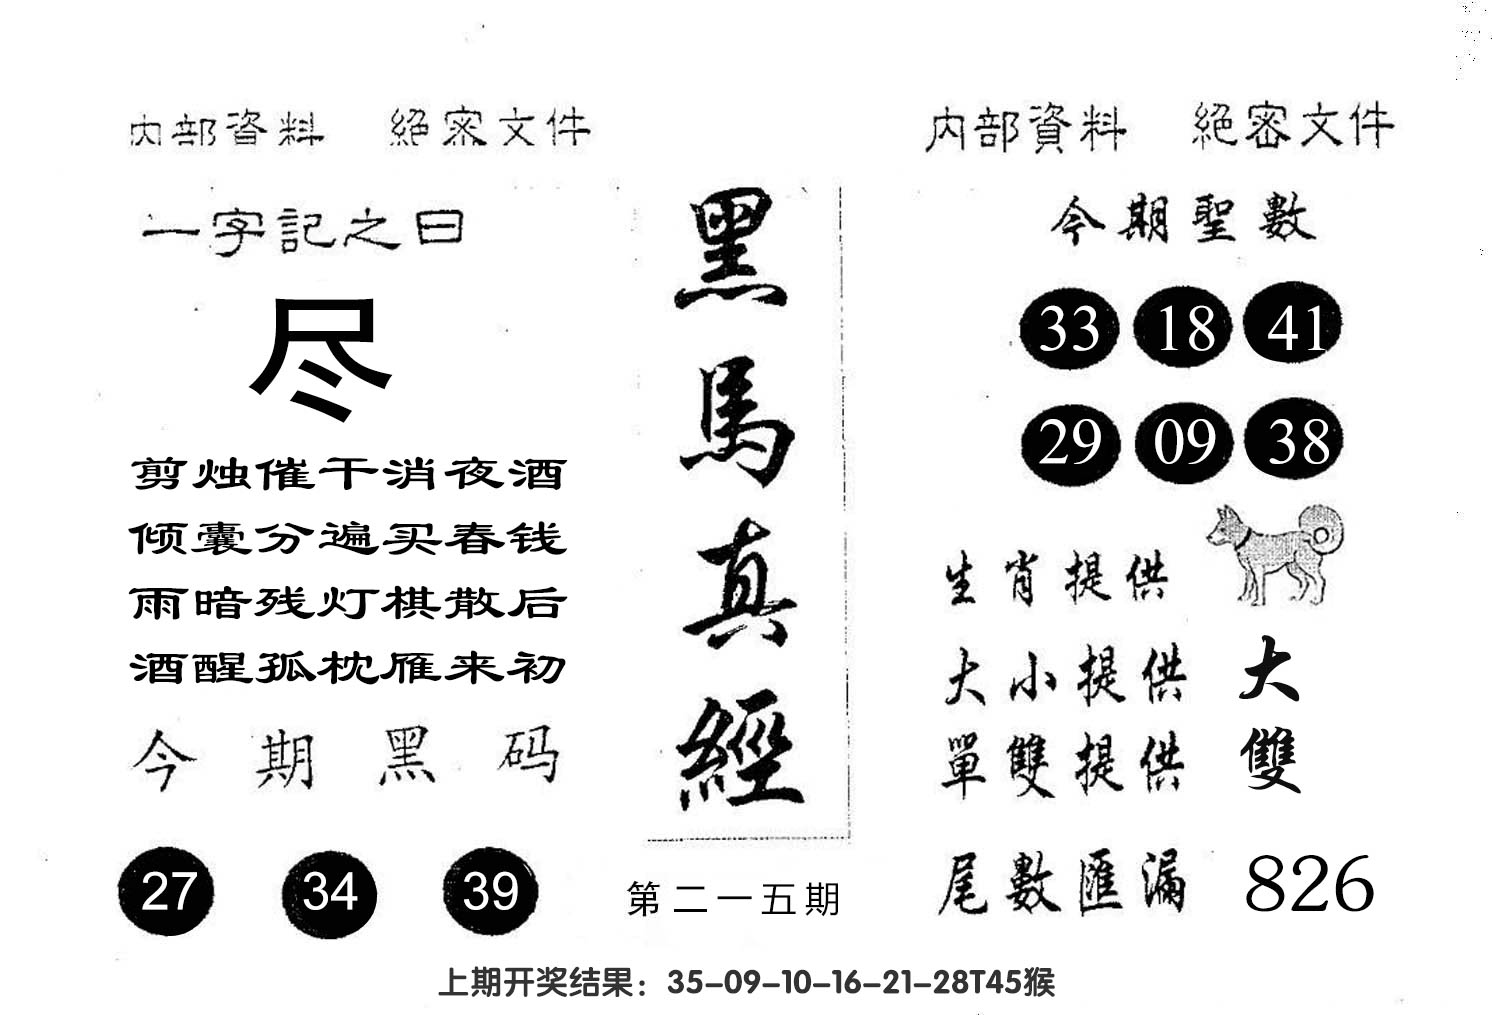 内部資料 絕密文件
一字記之曰
尽
剪烛催干消夜酒
倾囊分遍买春钱
雨暗残灯棋散后
酒醒孤枕雁来初
今期黑码
27 34 39
黑馬真經
第二一五期
内部資料 絕密文件
今期聖數
33 18 41
29 09 38
生肖提供
大小提供 大
單雙提供 雙
尾數匯漏 826
上期开奖结果：35-09-10-16-21-28T45猴